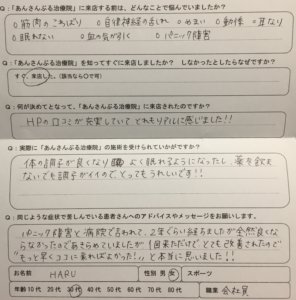 Q:「あんさんぶる治療院」に来店する前は、どんなことで悩んでいましたか?
○筋肉のこわばり ○自律神経の乱れ ○めまい ○動悸 ○耳なり
○眠れない ○血の気が引く ○パニック障害
Q:「あんさんぶる治療院」を知ってすぐに来店しましたか? しなかったとしたらなぜですか?
すぐ、来店した。(該当なら○で可)
Q:何が決めてとなって、「あんさんぶる治療院」に来店されたのですか?
HPの口コミが充実していて とてもリアルに感じました!!
Q:実際に「あんさんぶる治療院」の施術を受けられていかがですか?
体の調子が良くなり よく眠れるようになったし、薬を飲ま
ないでも調子がイイので、とってもうれしいです!!
Q:同じような症状で苦しんでいる患者さんへのアドバイスやメッセージをお願いします。
パニック障害と病院で言われて、2年くらい経ちましたが全然良くな
らなかったのであきらめていましたが1回来ただけで、とても改善されたので
"もっと早くココに来ればよかった!!"と本当に思いました!!
お名前 HARU 性別 男 女 スポーツ
年齢 10代 20代 30代 40代 50代 60代 70代 80代 職業 会社員